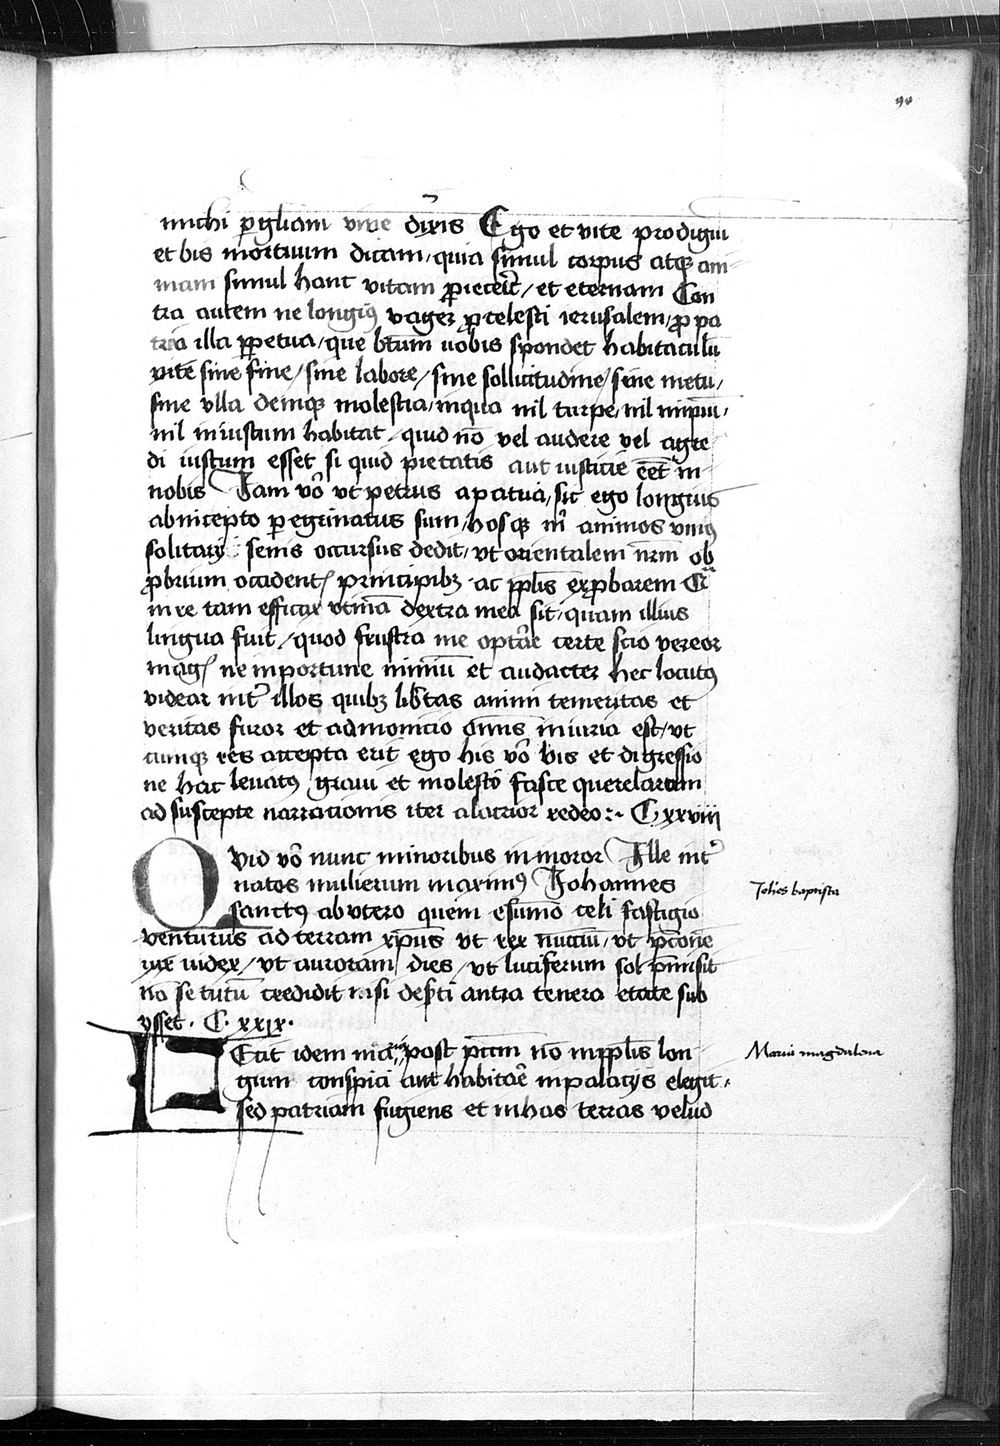 90
michi p gl̄iam vite dixͥis Ego et vite prodigū
et bis mortuum dicam, quia simul corpus atqꝫ ani-
mam simul hanc vitam ꝓiecerit / et eternam Con
tra autem ne longiꝰ vager ꝓ celesti ierusalem, ꝓ pa
tria illa ꝑpetua, que btām uobis spondet habitaculū
vite sine fine, sine labore, sine sollicitudine, sine metu,
sine vlla deinqꝫ molestia, inqua nil turpe, nil impiū,
nil iniustum habitat, quid nō vel audere vel agre-
di iustum esset si quid pietatis aut iusticie eēt in
nobis Jam vō vt petrus apatua, sic ego longius
abincepto peregrinatus sum, hosqꝫ m̄ animos vniꝰ
solitarij senis occursus dedit, vt orientalem nr̄m ob
ꝓbrium occident̄ principibꝫ ac ppl̄is exꝓbarem Et
in re tam efficax vtinā dextra mea sit, quam illius
lingua fuit, quod frustra me optāe certe scio vereor
maḡ ne inportune nimiū et audacter hec locutꝰ
videar int̄ illos quibꝫ lib̄tas animi temeritas et
veritas furor et admonicio om̄is iniuria est, vt
cumqꝫ res accepta erit ego his vō bis et digressio
ne hac leuatꝰ graui et molesto fasce querelarum
ad suscepte narracionis iter alacrior redeo :~ C xxviii
Qvid vō nunc minoribus immoror Ille int̄
natos mulierum maximꝰ Johannes
Joh̄es baptista
sanctꝰ abvtero quem esūmo celi fastigio
venturus ad terram xp̄us vt rex nūciū, vt p̄cone
iux iudex, vt auroram dies, vt luciferum sol p̄misit
nō se tutū credidit nisi des̄ti antra tenera etate sub
ysset . C . xxix .
Erat idem maria post pccm nō inppl̄is lon
Maria magdalena
gium conspici aut habitaē inpalacijs elegit .
sed patriam fugiens et inhas terras velud